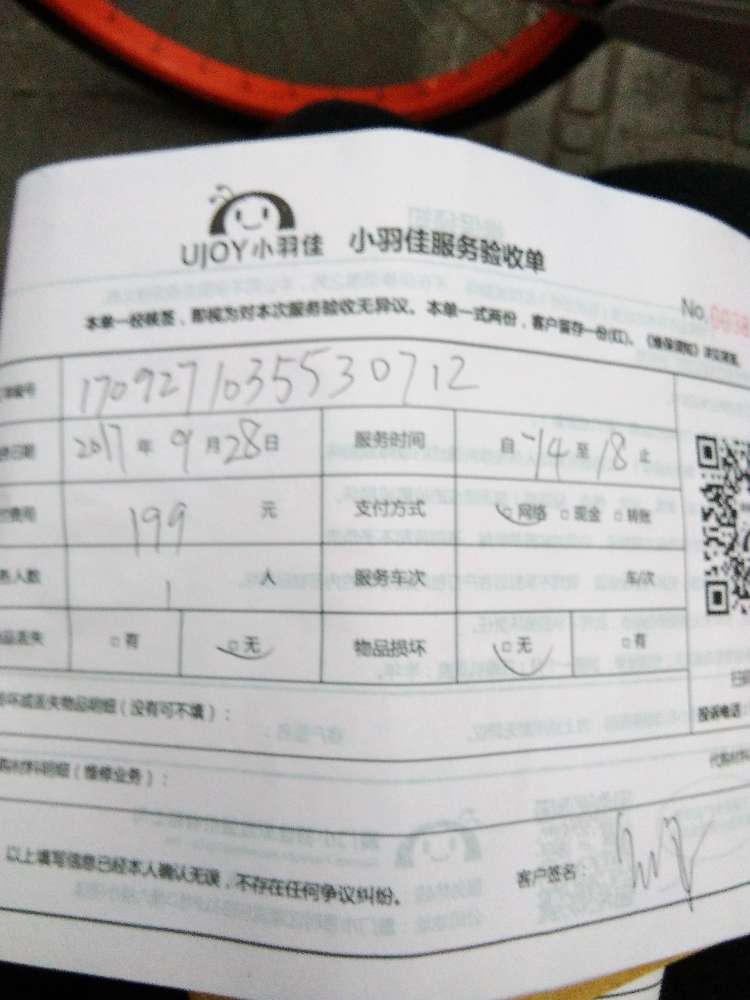 UJOY小羽佳 小羽佳服务验收单
No.
本单一经核签，即视为对本次服务验收无异议。本单一式两份，客户留存一份(红)。
编号 1709271035530712
日期 2017年9月28日 服务时间 自14至18止
费用 199元 支付方式 □网络 □现金 □转账
人数 1人 服务车次 车/次
品丢失 □有 □无 物品损坏 □无 □有
坏或丢失物品明细（没有可不填）：
投诉电话
材料明细（维修业务）：
以上填写信息已经本人确认无误，不存在任何争议纠纷。
客户签名：